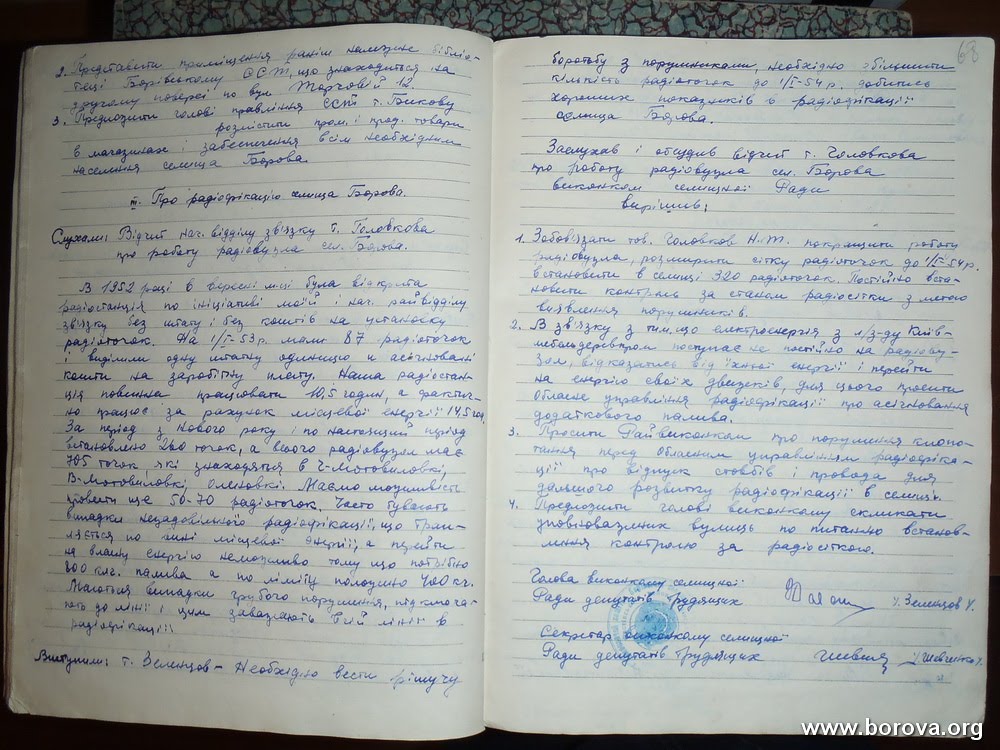 2. Представити приміщення раніш належне бібліо-
теці Борівському ССТ, що знаходиться на
другому поверсі по вул Торговій 12.
3. Предложити голові правління ССТ т. Бикову
розмістити пром. і прод. товари
в магазинах і забезпечення всім необхідним
населення селища Борова.
III. Про радіофікацію селища Борова.
Слухали: Відчит нач. відділу зв'язку т. Головкова
про роботу радіовузла сел. Борова.
В 1952 році в вересні місці була відкрита
радіостанція по ініціативі моїй і нач. райвідділу
зв'язку без штату і без коштів на установку
радіоточок. На 1/I-53 р. мали 87 радіоточок
і виділили одну штатну одиницю и асігновані
кошти на заробітну плату. Наша радіостан-
ція повинна працювати 10,5 годин, а фактич-
но працює за рахунок місцевої енергії 14,5 год.
За період з нового року і по настоящий період
встановлено 260 точок, а всього радіовузел має
705 точок, які знаходяться в Ч-Мотовиловкі,
В-Мотовиловкі, Оленовкі. Маємо можливість
ще 50-70 радіоточок. Часто бувають
випадки незадовільної радіофікації, що трап-
ляється по вині місцевої енергії, а перейти
на власну енергію неможливо тому що потрібно
800 клг. палива а по ліміту положино 400 кг.
Маються випадки грубого порушення, підключа-
ють до лінії і цим заважають всій лінії в
радіофікації
Виступили: т. Зеленцов - Необхідно вести рішучу
68
боротьбу з порушниками, необхідно збільшити
кількість радіоточок до 1/I-54 р. добитись
хороших показників в радіофікації
селища Борова.
Заслухав і обсудив відчит т. Головкова
про роботу радіовузла сел. Борова
виконком селищної Ради
вирішив:
1. Зобов'язати тов. Головков Н.Т. покращити роботу
радіовузла, розширити сітку радіоточок до 1/I-54 р.
встановити в селищі 320 радіоточок. Постійно вста-
новити контроль за станом радіосітки з метою
виявлення порушників.
2. В зв'язку з тим, що електроенергія з л/з-ду Київ-
меблідеревпром поступає не постійно на радіову-
зол, відказатись від їхньої енергії і перейти
на енергію своїх двигателів, для цього просити
обласне управління радіофікації про асігновання
додаткового палива.
3. Просити Райвиконком про порушення клопо-
тання перед Обласним управлінням радіофіка-
ції про відпуск стовбів і провода для
дальшого розвитку радіофікації в селищі.
4. Предложити голові виконкому скликати
уповноважених вулиць по питанню встанов-
лення контролю за радіосіткою.
Голова виконкому селищної
Ради депутатів трудящих / Зеленцов /
Секретар виконкому селищної
Ради депутатів трудящих / Шевченко /
www.borova.org